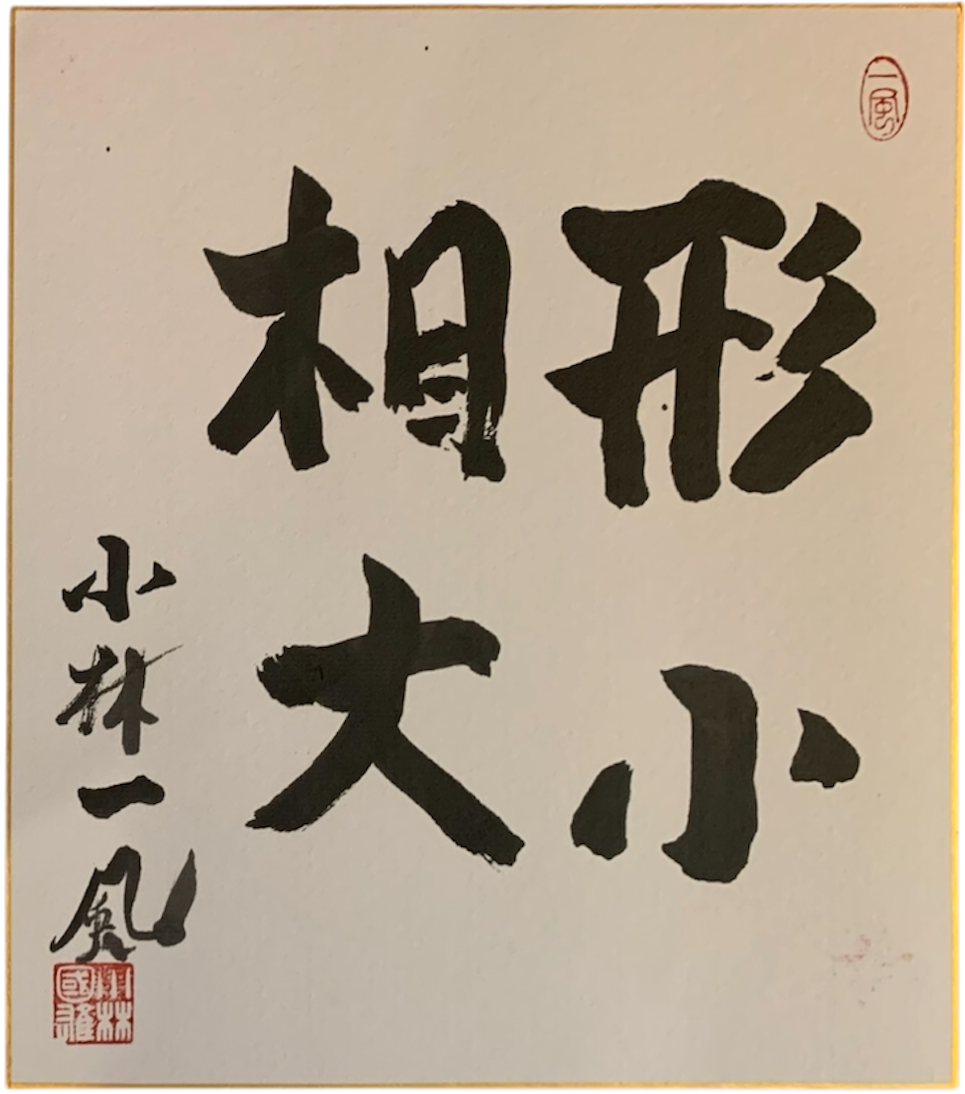 一風
形小
相大
小林一風
小林
國雄